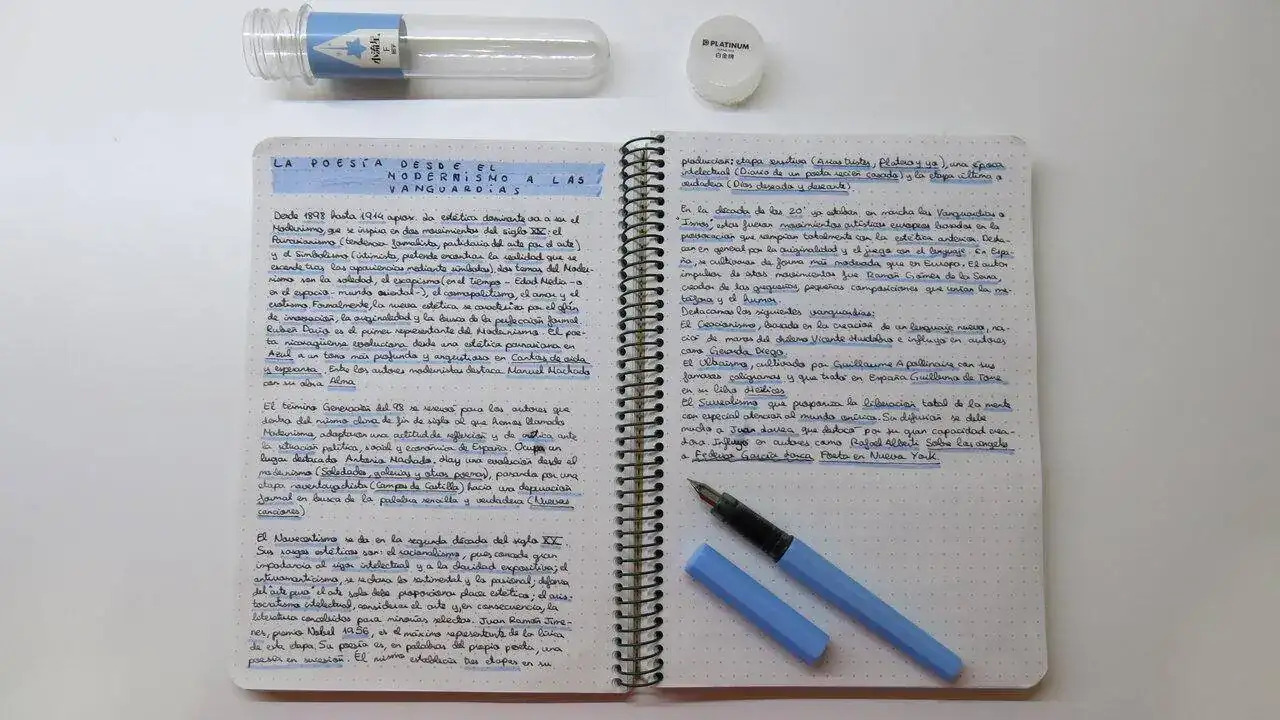 小流星
PLATINUM
白金牌
LA POESÍA DESDE EL
MODERNISMO A LAS
VANGUARDIAS
Desde 1898 hasta 1914 aprox. la estética dominante va a ser el
Modernismo, que se inspira en dos movimientos del siglo XIX: el
Parnasianismo (tendencia formalista, partidaria del arte por el arte)
y el simbolismo (intimista, pretende encontrar la realidad que se
esconde tras las apariencias mediante símbolos). Los temas del Moder-
nismo son la soledad, el escapismo (en el tiempo - Edad Media - o
en el espacio - mundo oriental -), el cosmopolitismo, el amor y el
erotismo. Formalmente, la nueva estética se caracteriza por el afán
de innovación, la originalidad y la busca de la perfección formal.
Rubén Darío es el primer representante del Modernismo. El poe-
ta nicaragüense evoluciona desde una estética parnasiana en
Azul a un tono más profundo y angustioso en Cantos de vida
y esperanza. Entre los autores modernistas destaca Manuel Machado
con su obra Alma
El término Generación del 98 se reserva para los autores que
dentro del mismo clima de fin de siglo al que hemos llamado
Modernismo adoptaron una actitud de reflexión y de crítica ante
la situación política, social y económica de España. Ocupa un
lugar destacado Antonio Machado. Hay una evolución desde el
modernismo (Soledades, galerías y otros poemas), pasando por una
etapa noventayochista (Campos de Castilla) hacia una depuración
formal en busca de la palabra sencilla y verdadera (Nuevas
canciones)
El Novecentismo se da en la segunda década del siglo XX.
Sus rasgos estéticos son: el racionalismo, pues concede gran
importancia al rigor intelectual y a la claridad expositiva; el
antirromanticismo, se rechaza lo sentimental y lo pasional; defensa
del "arte puro" el arte solo debe proporcionar placer estético; el aris-
tocratismo intelectual, consideran el arte y, en consecuencia, la
literatura concebidos para minorías selectas. Juan Ramón Jimé-
nez, premio Nobel 1956, es el máximo representante de la lírica
de esta etapa. Su poesía es, en palabras del propio poeta, una
poesía en sucesión. Él mismo establecía tres etapas en su
producción: etapa sensitiva (Arias tristes, Platero y yo), una época
intelectual (Diario de un poeta recién casado) y la etapa última o
verdadera (Dios deseado y deseante).
En la década de los 20' ya estaban en marcha las Vanguardias o
"Ismos", estas fueron movimientos artísticos europeos basados en la
provocación que rompían totalmente con la estética anterior. Desta-
can en general por la originalidad y el juego con el lenguaje. En Espa-
ña, se cultivaron de forma más moderada que en Europa. El autor
impulsor de estos movimientos fue Ramón Gómez de la Serna,
creador de las greguerías pequeñas composiciones que unían la me-
táfora y el humor.
Destacamos las siguientes vanguardias:
El Creacionismo, basado en la creación de un lenguaje nuevo, na-
ció de manos del chileno Vicente Huidobro e influyó en autores
como Gerardo Diego.
El Ultraísmo, cultivado por Guillaume Apollinaire en sus
famosos caligramas y que trató en España Guillermo de Torre
en su libro Hélices
El Surrealismo que proponía la liberación total de la mente
con especial atención al mundo onírico. Su difusión se debe
mucho a Juan Larrea que destacó por su gran capacidad crea-
dora. Influyó en autores como Rafael Alberti Sobre los ángeles
o Federico García Lorca Poeta en Nueva York.